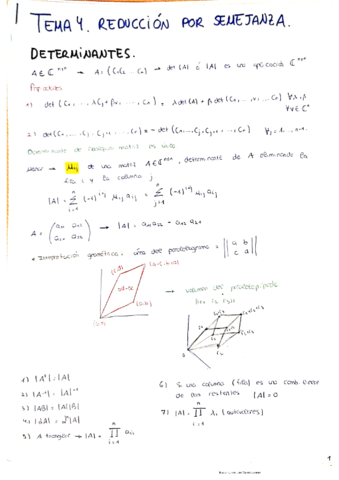 TEMA 4. REDUCCIÓN POR SEMEJANZA.
DETERMINANTES.
A ∈ ℂⁿˣⁿ → A = (C₁C₂ ... Cₙ) → det(A) ó |A| es una aplicación ℂⁿˣⁿ
Propiedades
det (C₁, ..., λCⱼ + βv, ..., Cₙ) = λ det(A) + β det(C₁, ..., v, ..., Cₙ) ∀λ, β
∀v ∈ ℂⁿ
2) det(C₁, ..., Cⱼ, Cⱼ₊₁, ..., Cₙ) = - det(C₁, ..., Cⱼ₊₁, Cⱼ, ..., Cₙ)
Determinante de cualquier matriz es
Menor → Mᵢⱼ de una matriz A ∈ ℂⁿˣⁿ, determinante de A eliminando la
fila i y la columna j.
|A| = Σ (-1)ⁱ⁺ʲ Mᵢⱼ aᵢⱼ = Σ (-1)ⁱ⁺ʲ Mᵢⱼ aᵢⱼ
A = (a₁₁ a₁₂ / a₂₁ a₂₂) → |A| = a₁₁a₂₂ - a₁₂a₂₁
• Interpretación geométrica: área del paralelogramo = ||a b / c d||
(c,d)
(a+c, b+d)
(a,b)
(0,0)
→ volumen del paralelepípedo
1) |Aᵗ| = |A|
2) |A⁻¹| = |A|⁻¹
3) |AB| = |A||B|
4) |λA| = λⁿ|A|
5) A triangular → |A| = ∏ aᵢᵢ
6) Si una columna (fila) es una comb. lineal
de las restantes |A| = 0
7) |A| = ∏ λᵢ (autovalores)
1